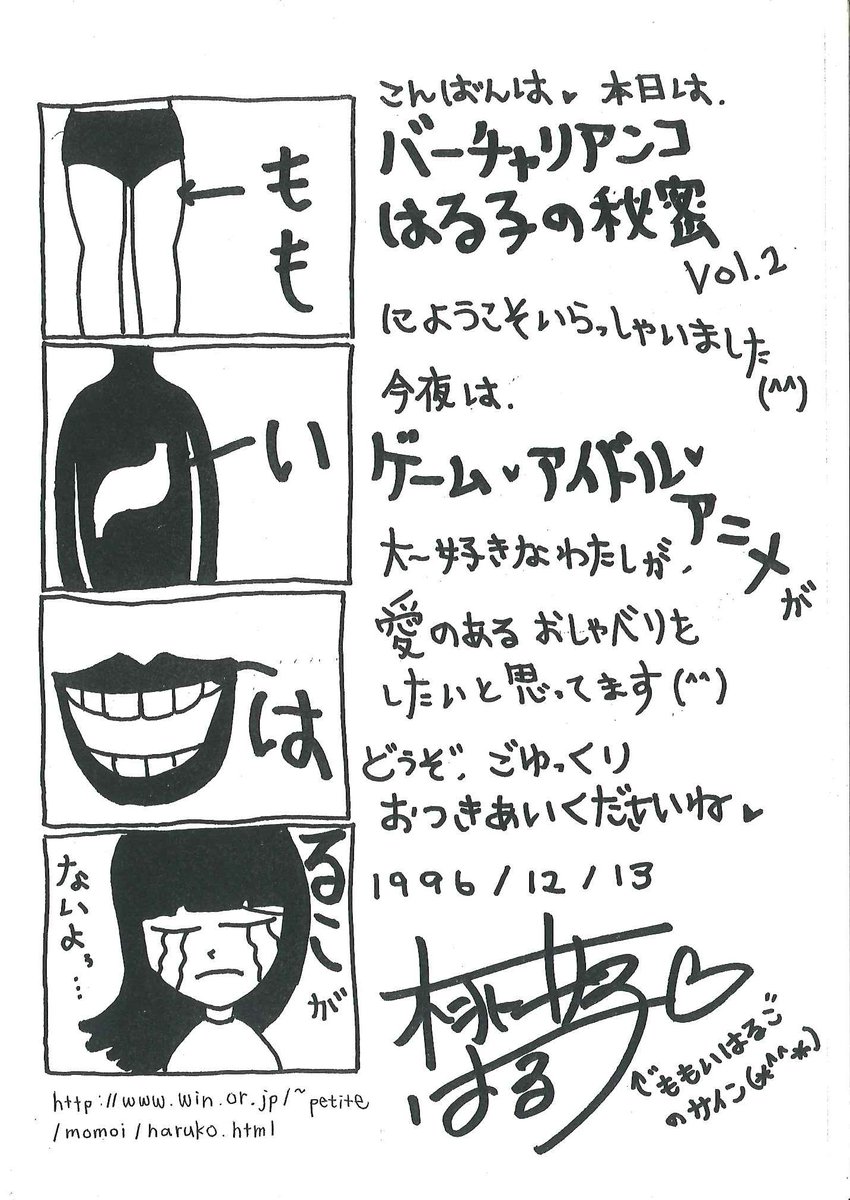 もも
い
は
るこが
ないよぅ…
http://www.win.or.jp/~petite
/momoi/haruko.html
こんばんは♥ 本日は、
バーチャリアンコ
はる子の秘密
Vol.2
にようこそいらっしゃいました
(^^)
今夜は、
ゲーム♥アイドル♥
アニメが
大〜好きなわたしが、
愛のあるおしゃべりを
したいと思ってます(^^)
どうぞ、ごゆっくり
おつきあいくださいね♥
1996/12/13
はる
ももいはるこ
のサイン(*^^*)